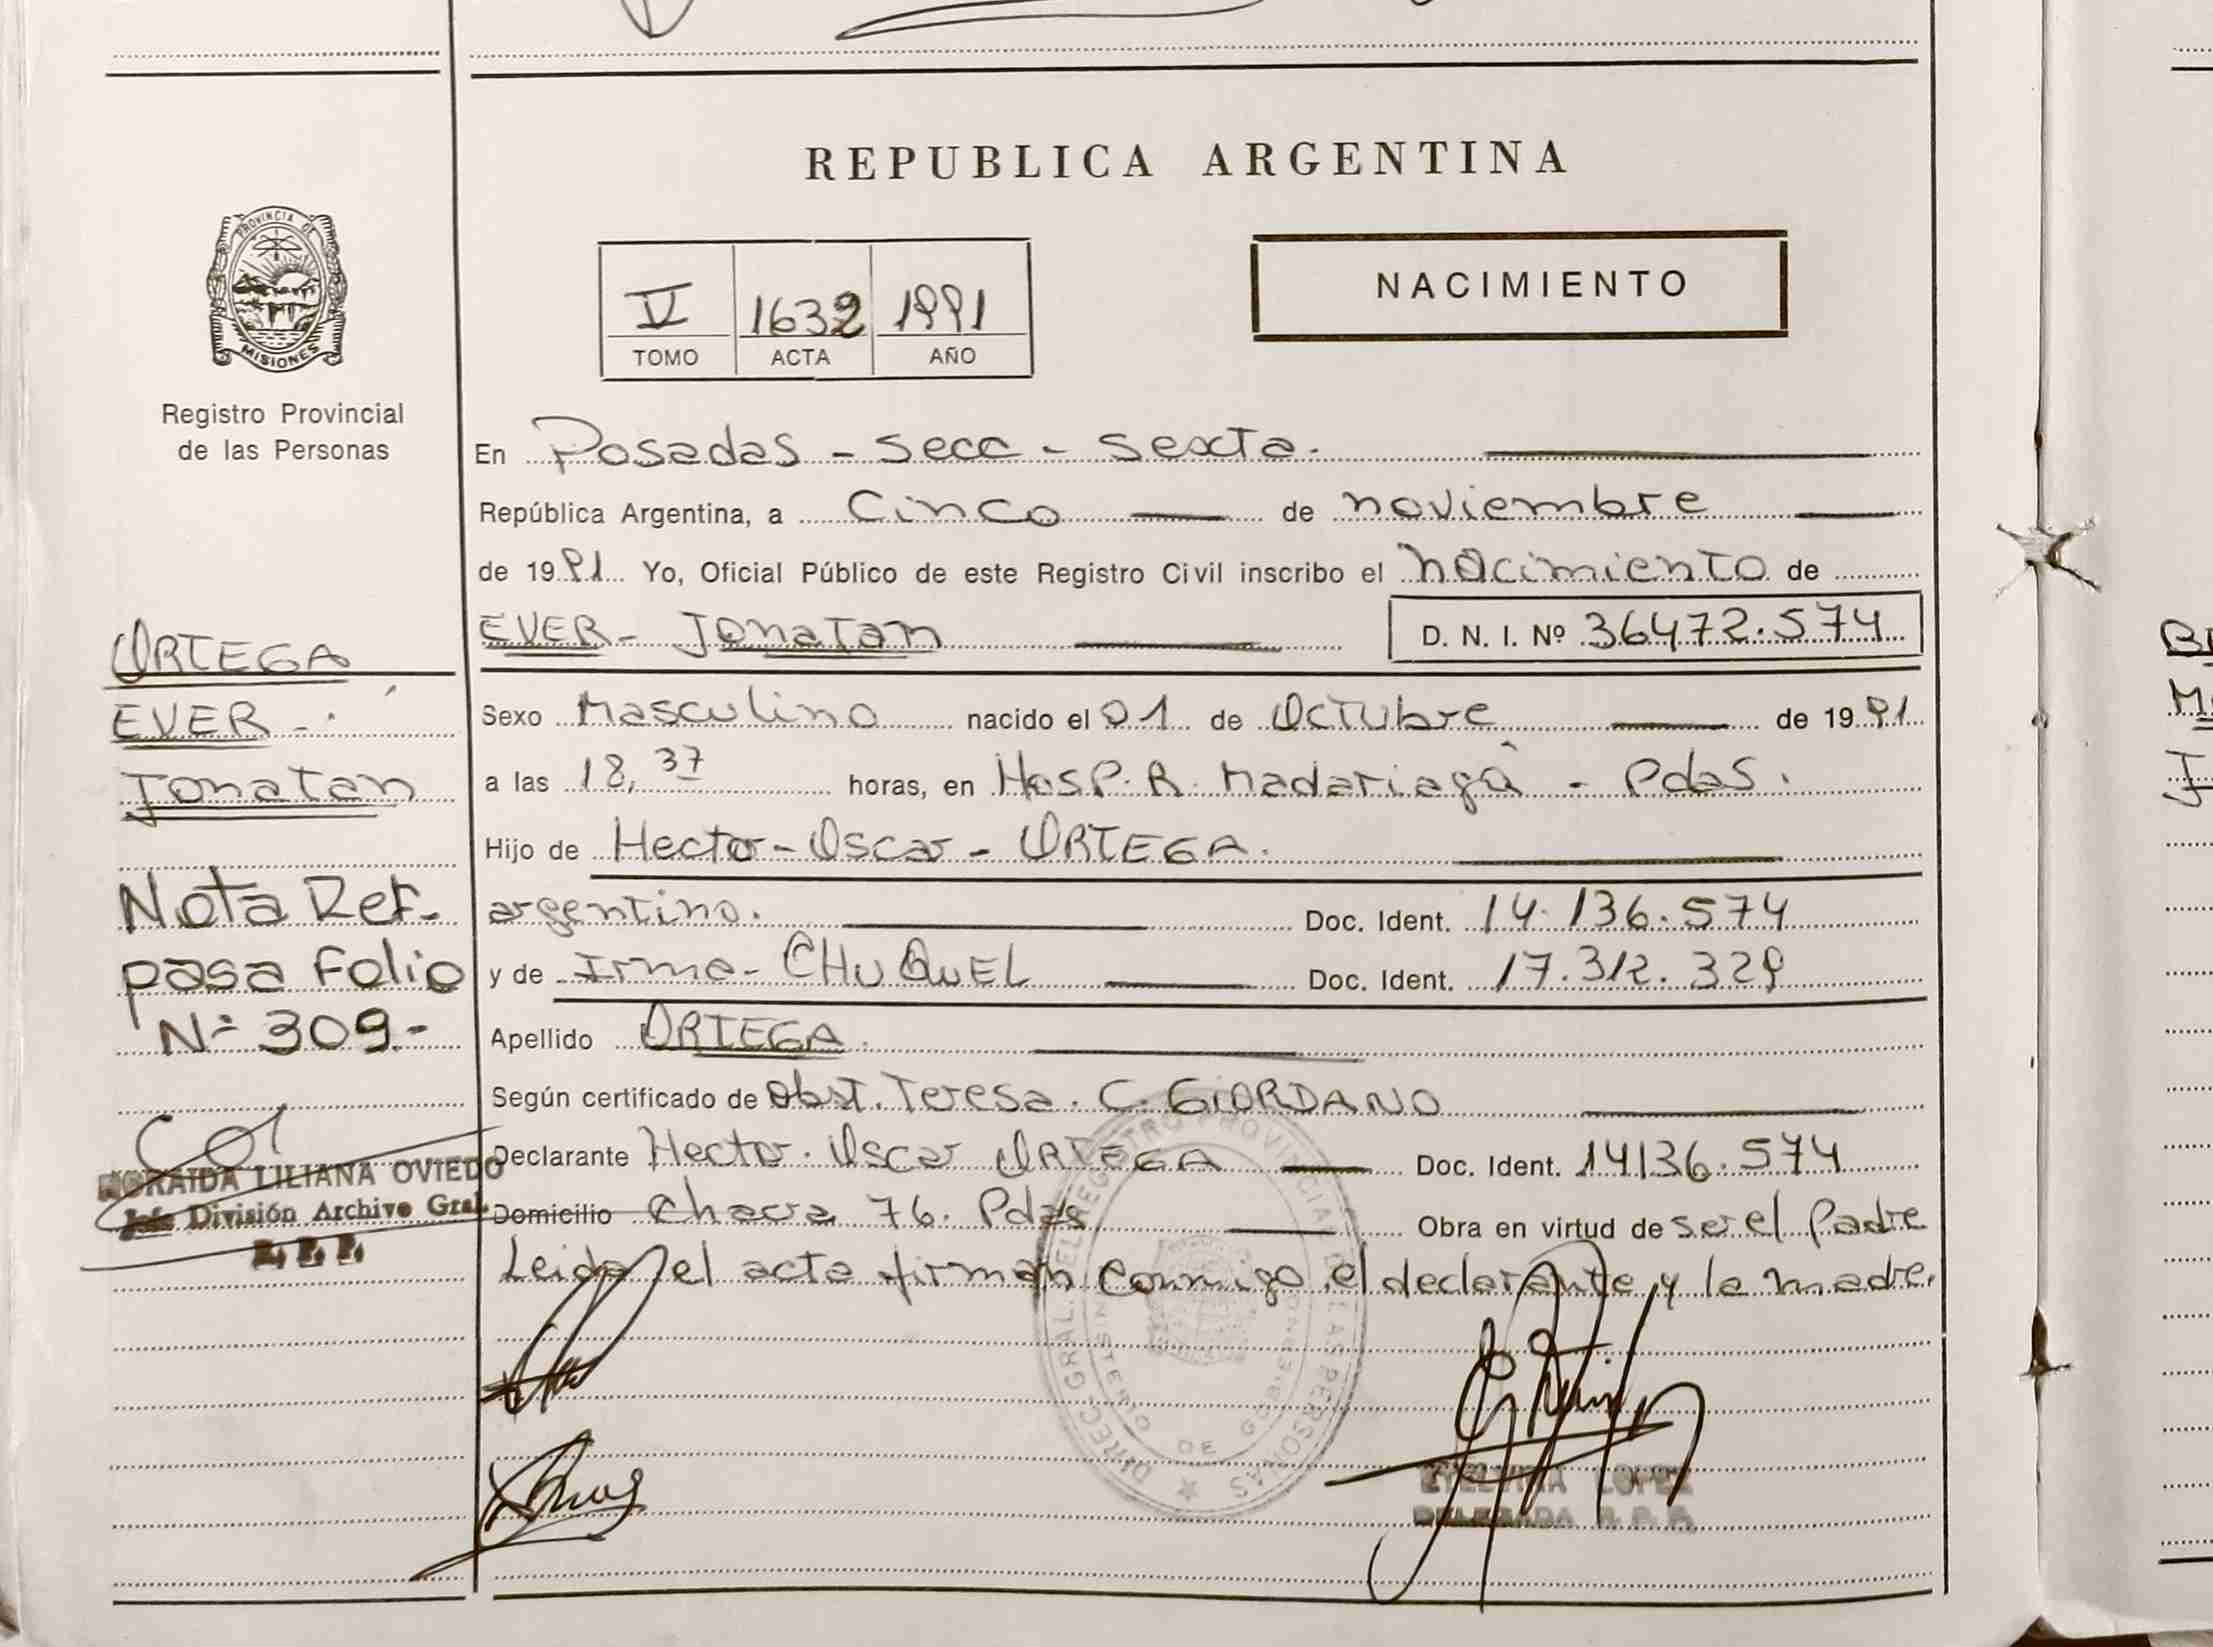 REPUBLICA ARGENTINA
PROVINCIA DE
MISIONES
Registro Provincial
de las Personas
V 1632 1991
TOMO ACTA AÑO
NACIMIENTO
En Posadas - secc - sexta.
República Argentina, a Cinco de noviembre
de 1991 Yo, Oficial Público de este Registro Civil inscribo el nacimiento de
EVER - Jonatan D. N. I. Nº 36472.574
Sexo Masculino nacido el 01 de Octubre de 1991
a las 18,37 horas, en Hosp. R. Madariaga - Pdas.
Hijo de Hector - Oscar - ORTEGA.
argentino. Doc. Ident. 14.136.574
y de Irma - CHUQUEL Doc. Ident. 17.312.329
Apellido ORTEGA
Según certificado de Obst. Teresa. C. GIORDANO
Declarante Hector. Oscar ORTEGA Doc. Ident. 14136.574
Domicilio Chacra 76. Pdas Obra en virtud de ser el padre
Leida el acta firman conmigo el declarante y la madre.
ORTEGA
EVER -
Jonatan
Nota Ref.
pasa Folio
Nº 309-
NORAIDA LILIANA OVIEDO
Jefe División Archivo Gral.
R. P. P.
DIREC. GRAL. DEL REGISTRO PROVINCIAL DE LAS PERSONAS
MINISTERIO DE GOBIERNO
ETELVINA LOPEZ
DELEGADA R. P. P.